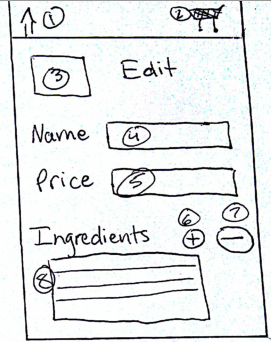 1 2
3 Edit
Name 4
Price 5
6 7
Ingredients + −
8